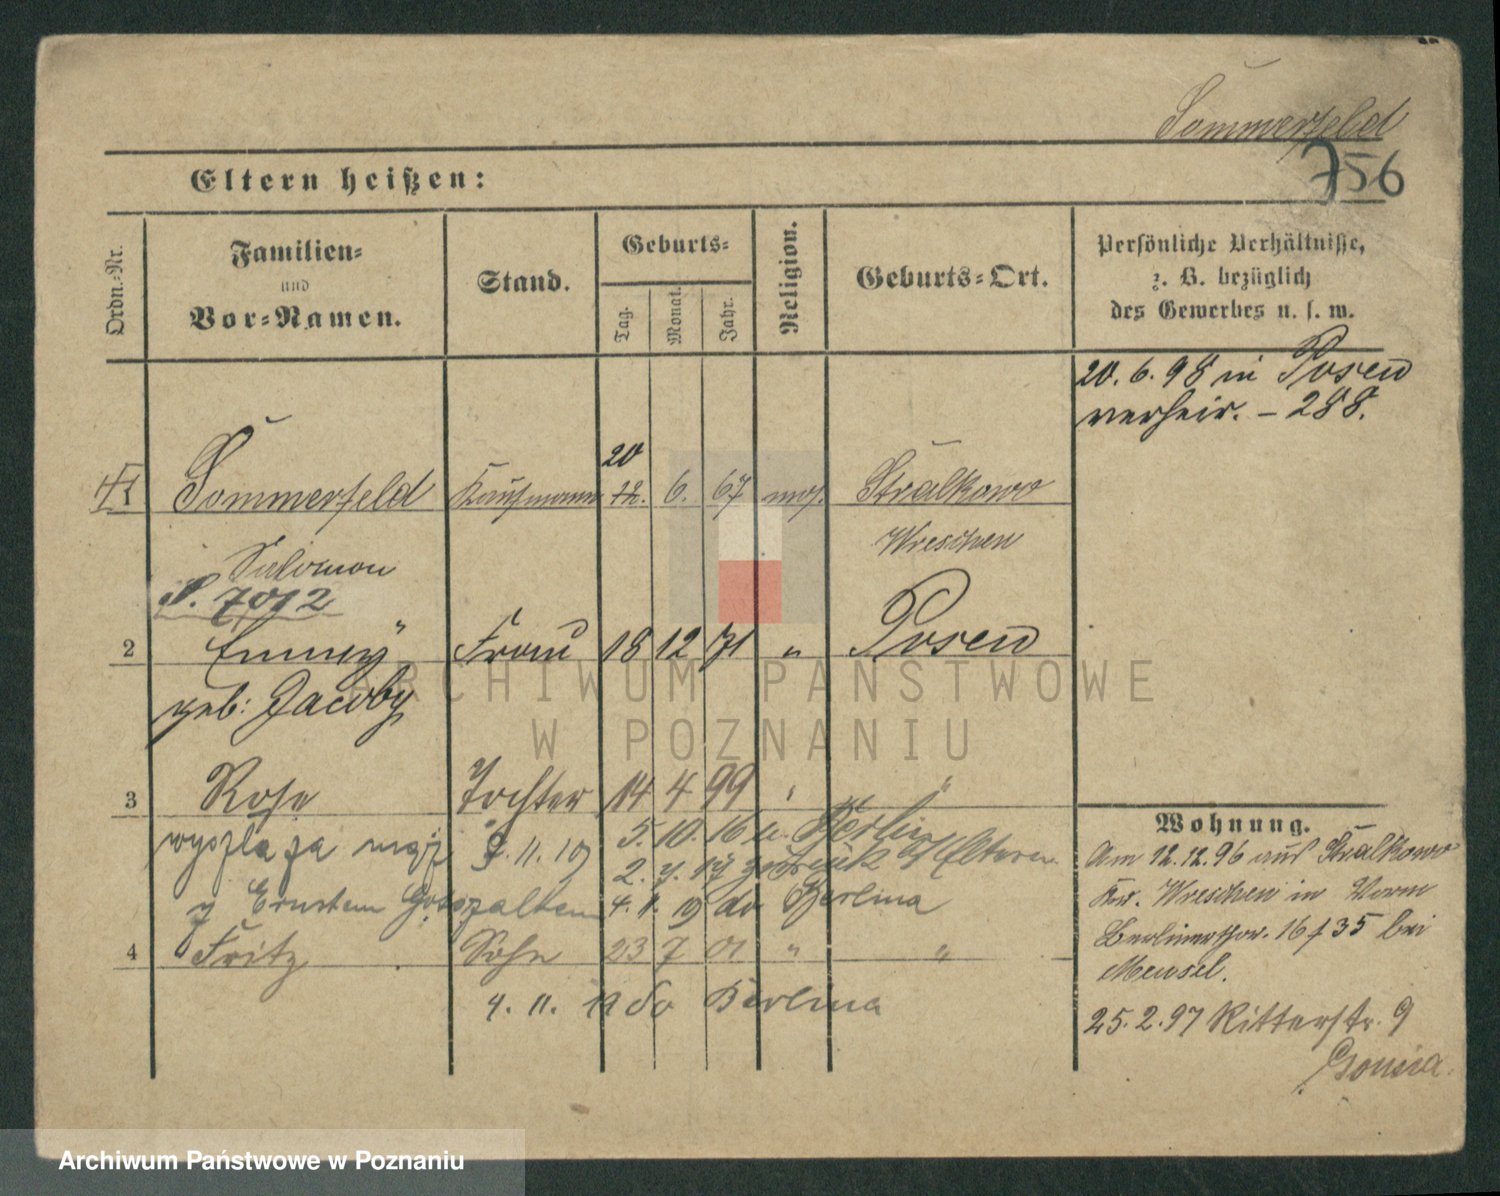 Sommerfeld
756
Eltern heißen:
Ordn.-Nr.
Familien- und Vor-Namen.
Stand.
Geburts-
Tag.
Monat.
Jahr.
Religion.
Geburts-Ort.
Persönliche Verhältnisse,
z. B. bezüglich
des Gewerbes u. s. w.
20.6.98 in Posen
verheir. – 288.
1 Sommerfeld Kaufmann 12. 20 6. 67 mos. Stralkowo
Salomon Wreschen
S. 7012
2 Emmy Frau 18 12 71 " Posen
geb: Jacoby
3 Rosa Tochter 14 4 99 " "
5. 10. 16 n. Berlin
wyszła za mąż 9. 11. 19
2. 4. 17 zurück Eltern
z Ernstem 4. 11. 19 do Berlina
4 Fritz Sohn 23 7 01 " "
4. 11. 19 do Berlina
Wohnung.
Am 12.12.96 aus Stralkowo
Kr. Wreschen in
Berlinerthor. 16 f 35 bei
Mensel.
25.2.97 Ritterstr. 9
ARCHIWUM PAŃSTWOWE
W POZNANIU
Archiwum Państwowe w Poznaniu